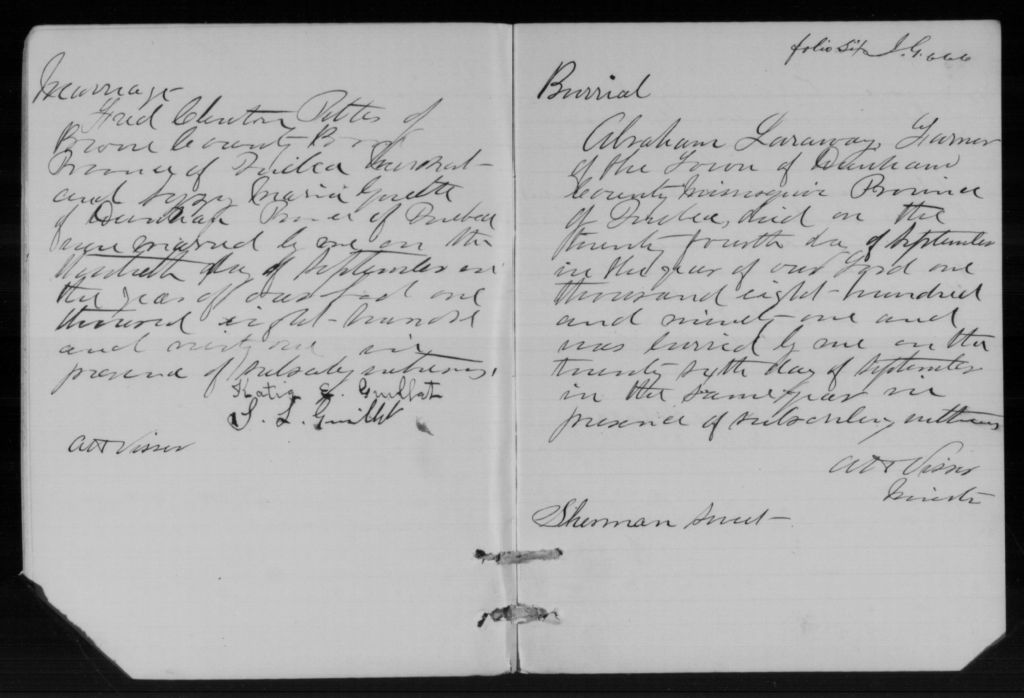 Marriage
Fred Clinton Pettes of
Brome County Brome
Province of Quebec Merchant
and Lizzy Maria Guillet
of Dunham Province of Quebec
were married by me on the
thirtieth day of September in
the year of our Lord one
thousand eight-hundred
and ninty one in
presence of subscribing witnesses.
Katie E. Guillet
S. L. Guillet
Visser
folio six
Burrial
Abraham Laraway, Farmer
of the Town of Dunham
County Missisquoi Province
of Quebec, died on the
twenty fourth day of September
in the year of our Lord one
thousand eight-hundred
and ninety-one and
was burried by me on the
twenty sixth day of September
in the same year in
presence of subscribing witnesses
Visser
Minister
Sherman Sweet